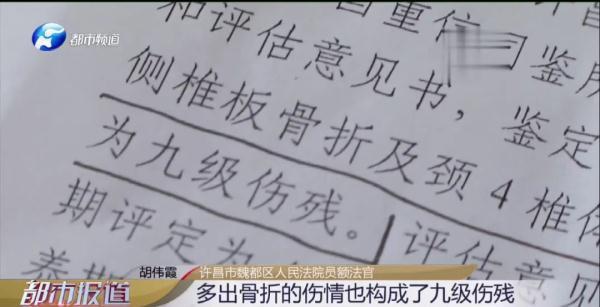 都市频道
重信司鉴所
和评估意见书，鉴定
侧椎板骨折及颈4椎体
为九级伤残。评估意见
期评定为
胡伟霞 许昌市魏都区人民法院员额法官
都市报道 多出骨折的伤情也构成了九级伤残